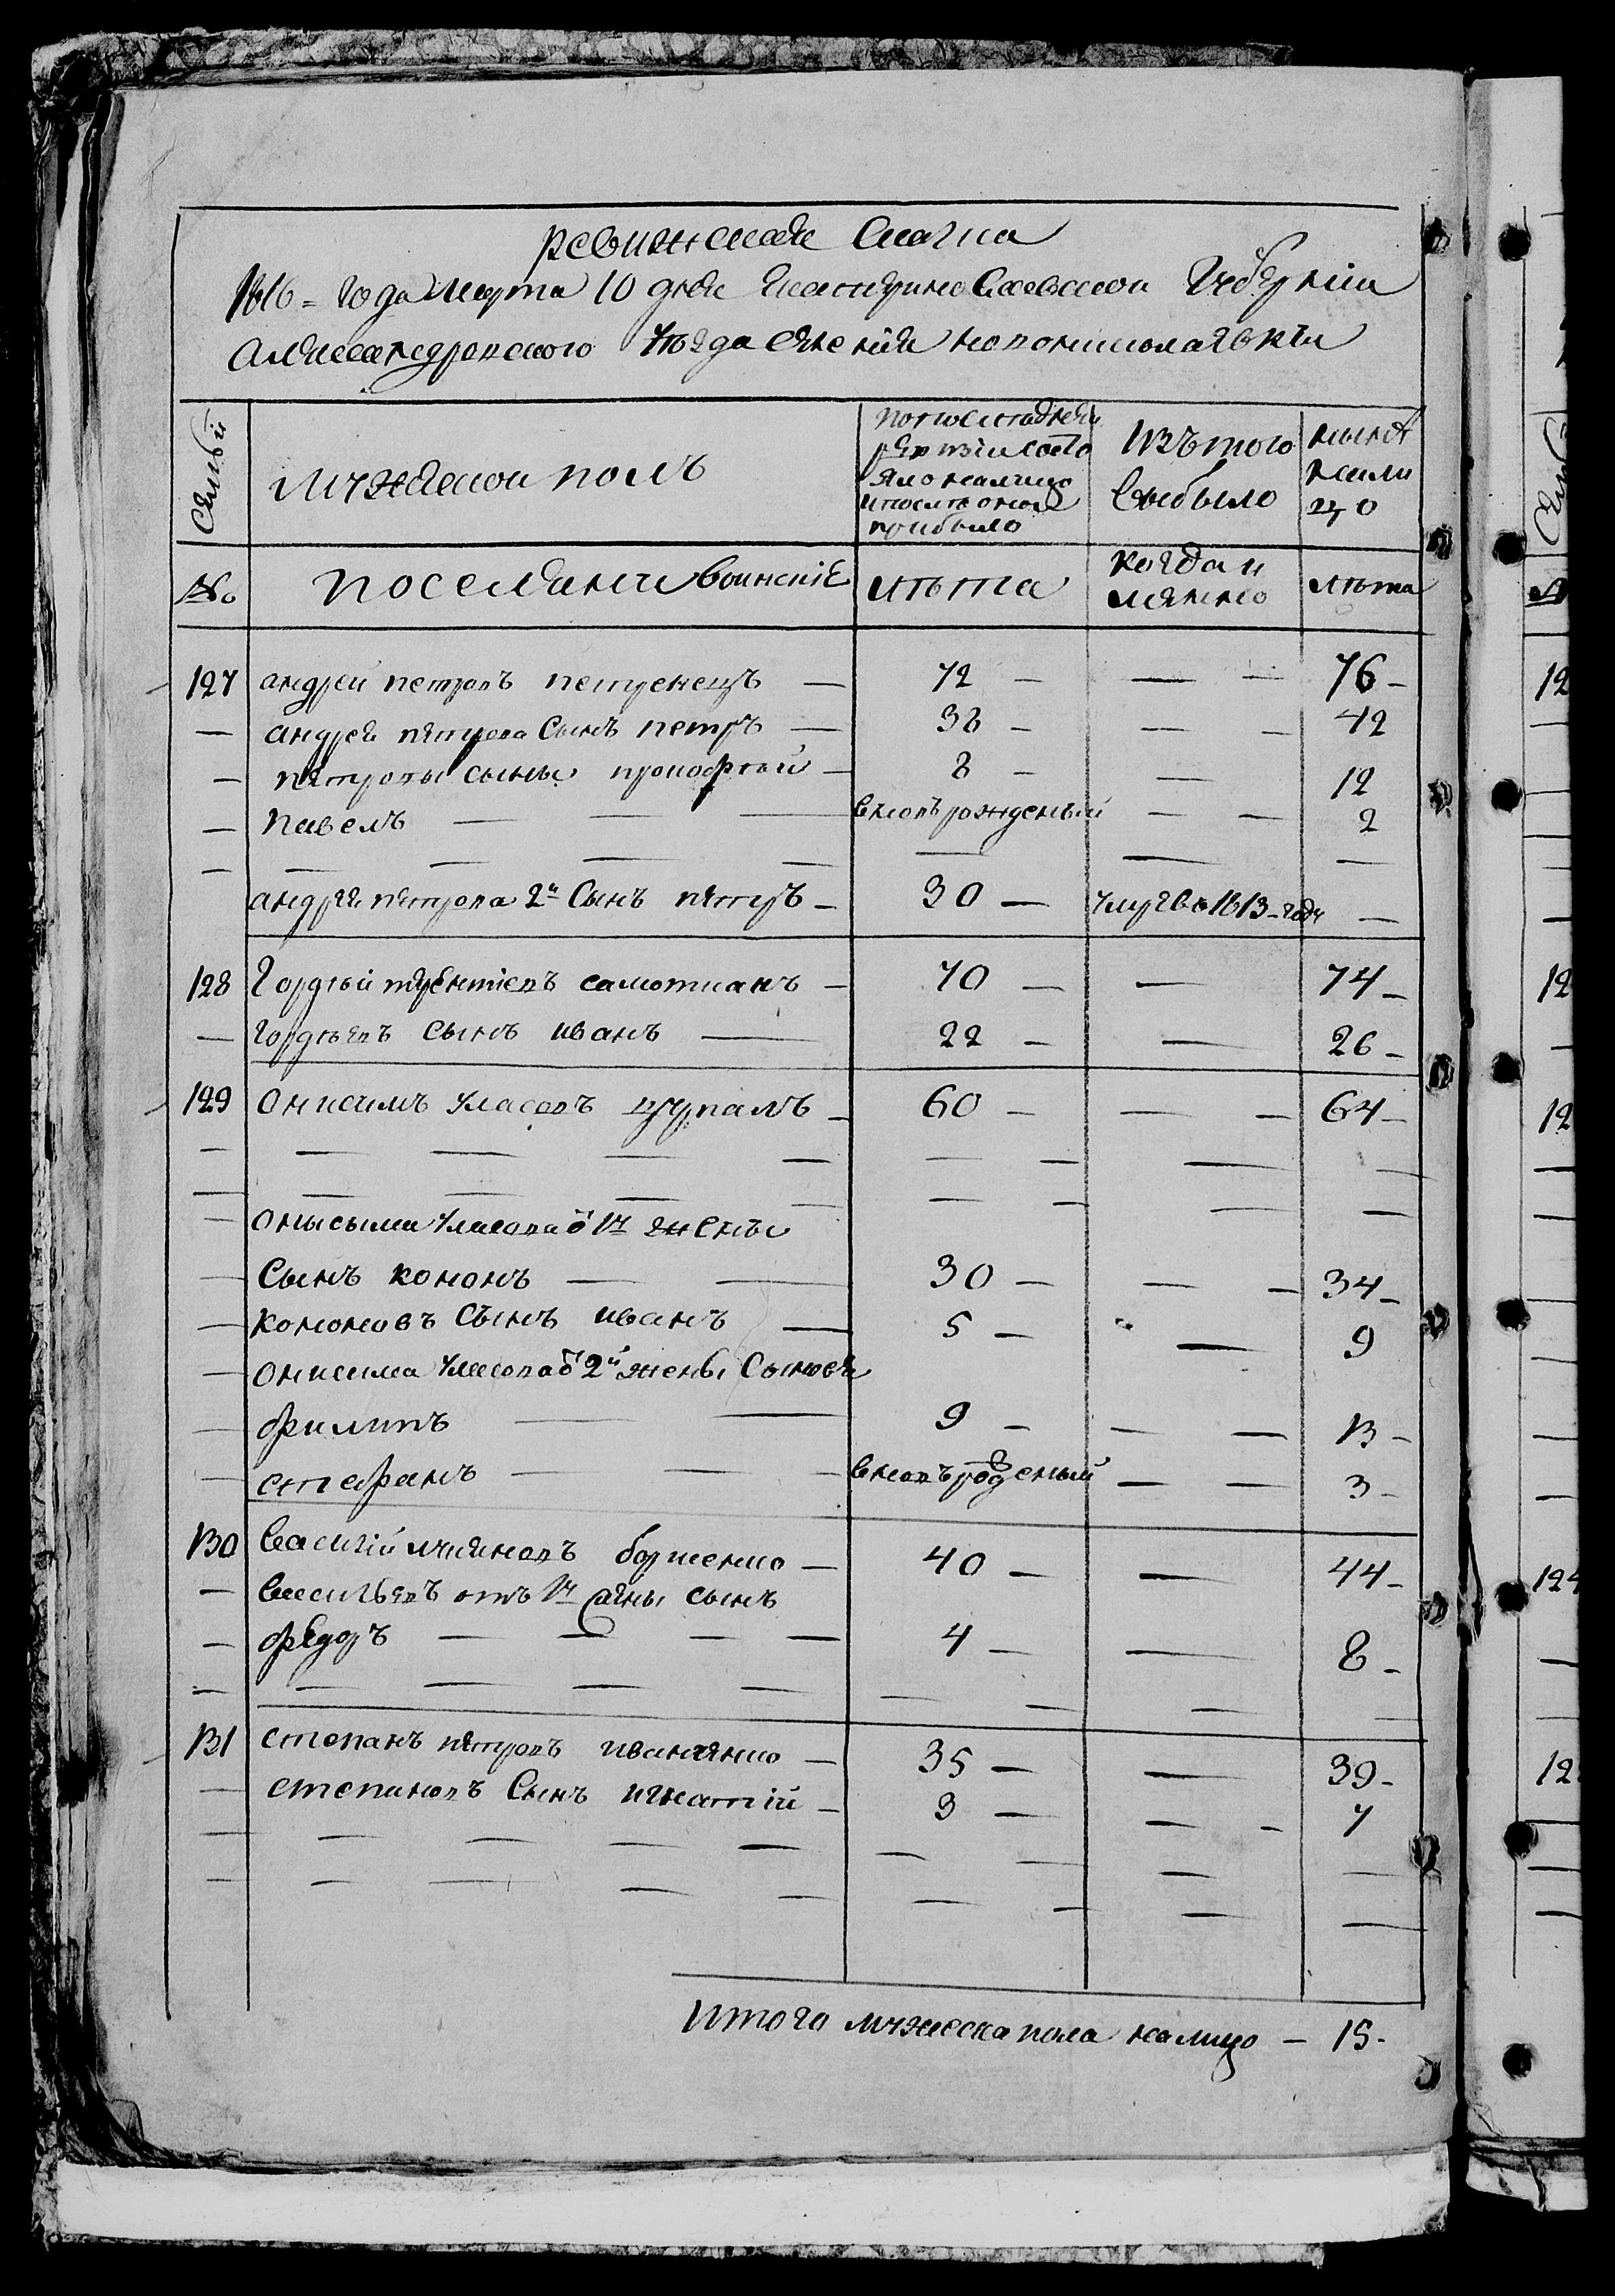 ревижская Скаска
1816 = года марта 10 дня Екатерино Славской Губерніи
Александровского уезда селенія новониколаевки
Семьи
мужеской полъ
по последней
ревизіи состо
яло налицо
и после оной
прибыло
Изъ того
выбыло
ныне
нали
цо
№
поселяни воинскіе
лѣта
когда и
лѣта
127 андрей петровъ петренецъ — 72 — — — 76 —
— андрея петрова Сынъ петръ — 38 — — — 42
— петровы сыны прокофтий — 8 — — 12
— павелъ — — — вновъ рожденый — — 2
— — — — — — — —
андрея петрова 2й Сынъ петръ — 30 — умре в 1813 — году —
128 Гордѣй терентіевъ самотканъ — 70 — — 74 —
— гордѣевъ сынъ иванъ — 22 — — 26 —
129 Онисимъ уласовъ цупалъ — 60 — — — 64 —
— — — — — — — — —
— — — — — — — — —
— онысыма уласова о 1й жены
— Сынъ кононъ — — 30 — — — 34 —
— кононовъ Сынъ иванъ — 5 — — 9
— онисима уласова о 2й жены Сыновя
— филипъ — — 9 — — — 13 —
— стефанъ — — — вновъ рожденый — — 3 —
130 Василій лукяновъ борженко — 40 — — 44 —
— васильевъ отъ 1й жены сынъ
— федоръ — — — — 4 — — 8 —
— — — — — — — — —
131 степанъ петровъ иваненко — 35 — — 39 —
— степановъ Сынъ игнатій — 3 — — — 7
— — — — — — — — —
— — — — — — — — —
Итого мужеска пола налицо — 15 —